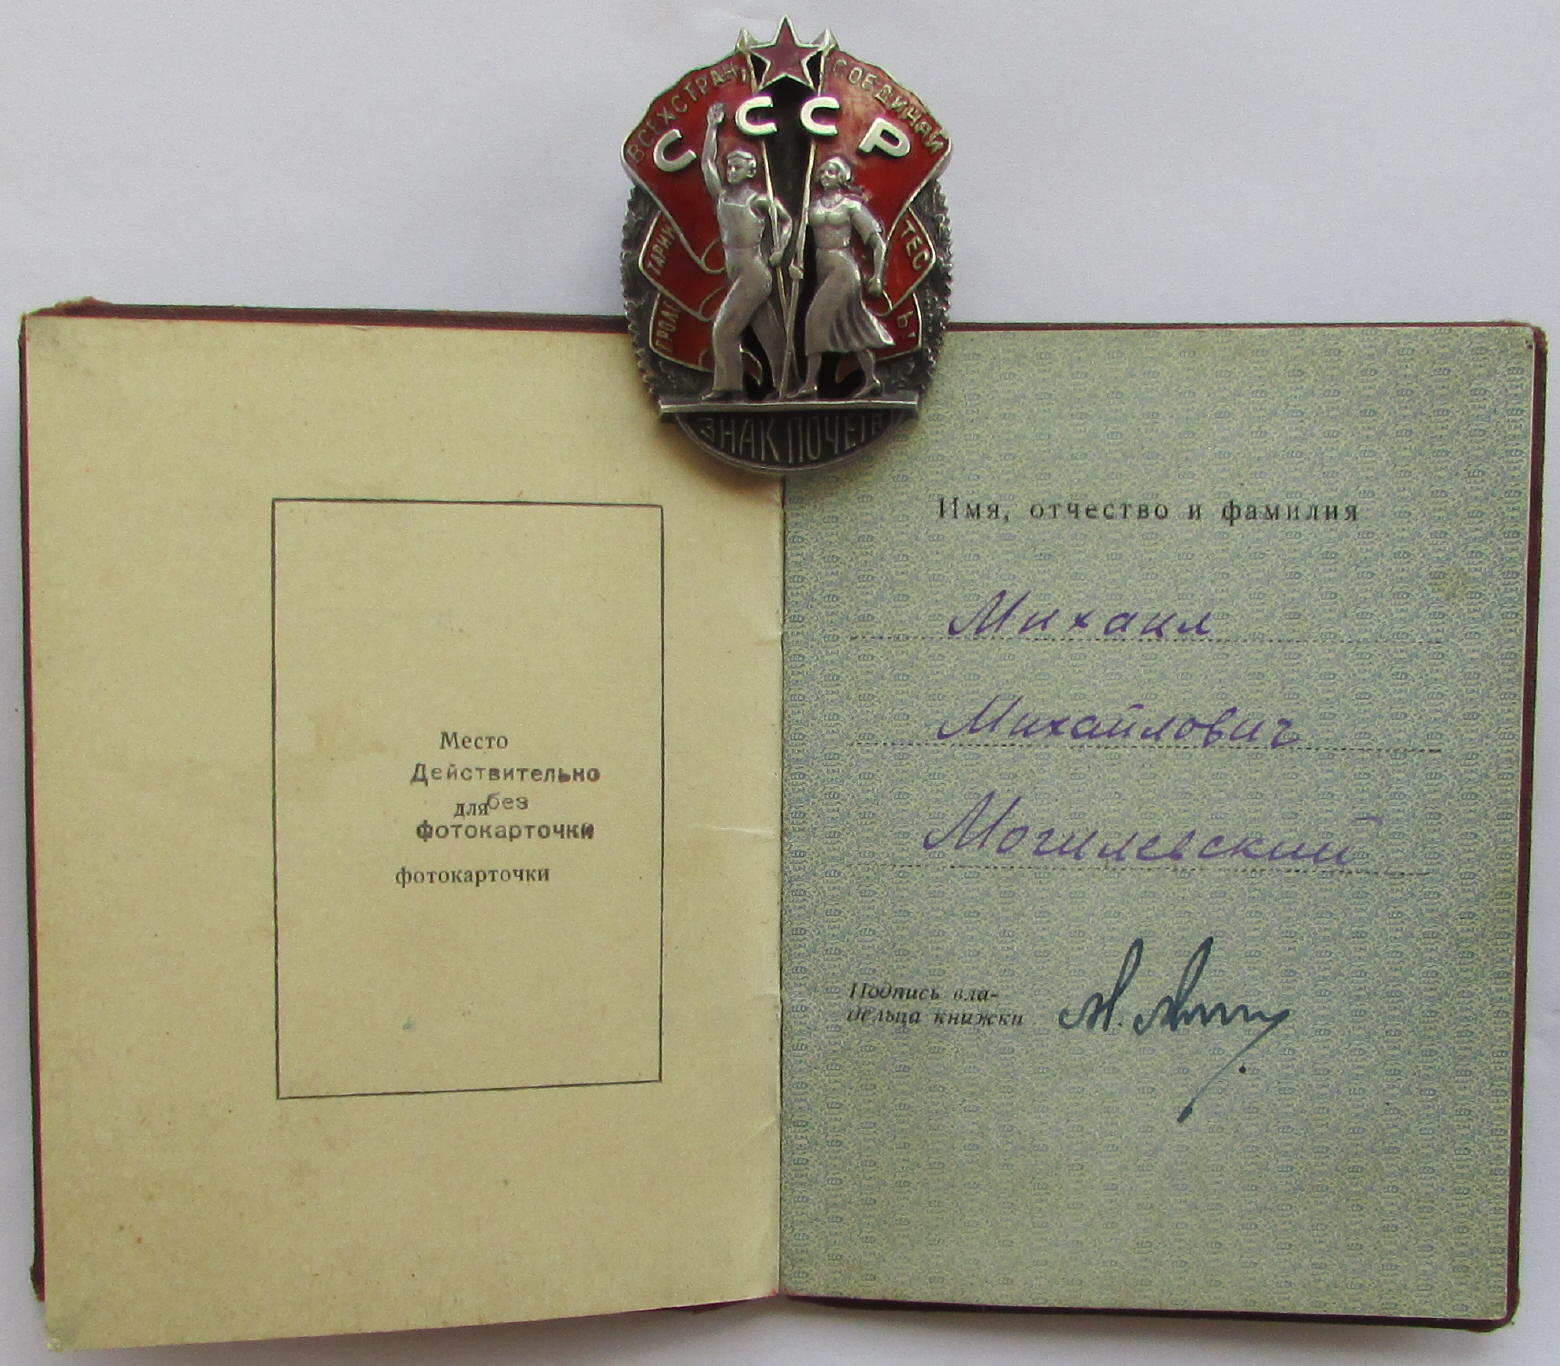 ВСЕХ СТРАН, СОЕДИНЯЙ
С С С Р
ТАРИИ ТЕС
ПРОЛЕ Ь!
ЗНАК ПОЧЕТА
Место
Действительно
для без
фотокарточки
фотокарточки
Имя, отчество и фамилия
Михаил
Михайлович
Могилевский
Подпись вла-
дельца книжки